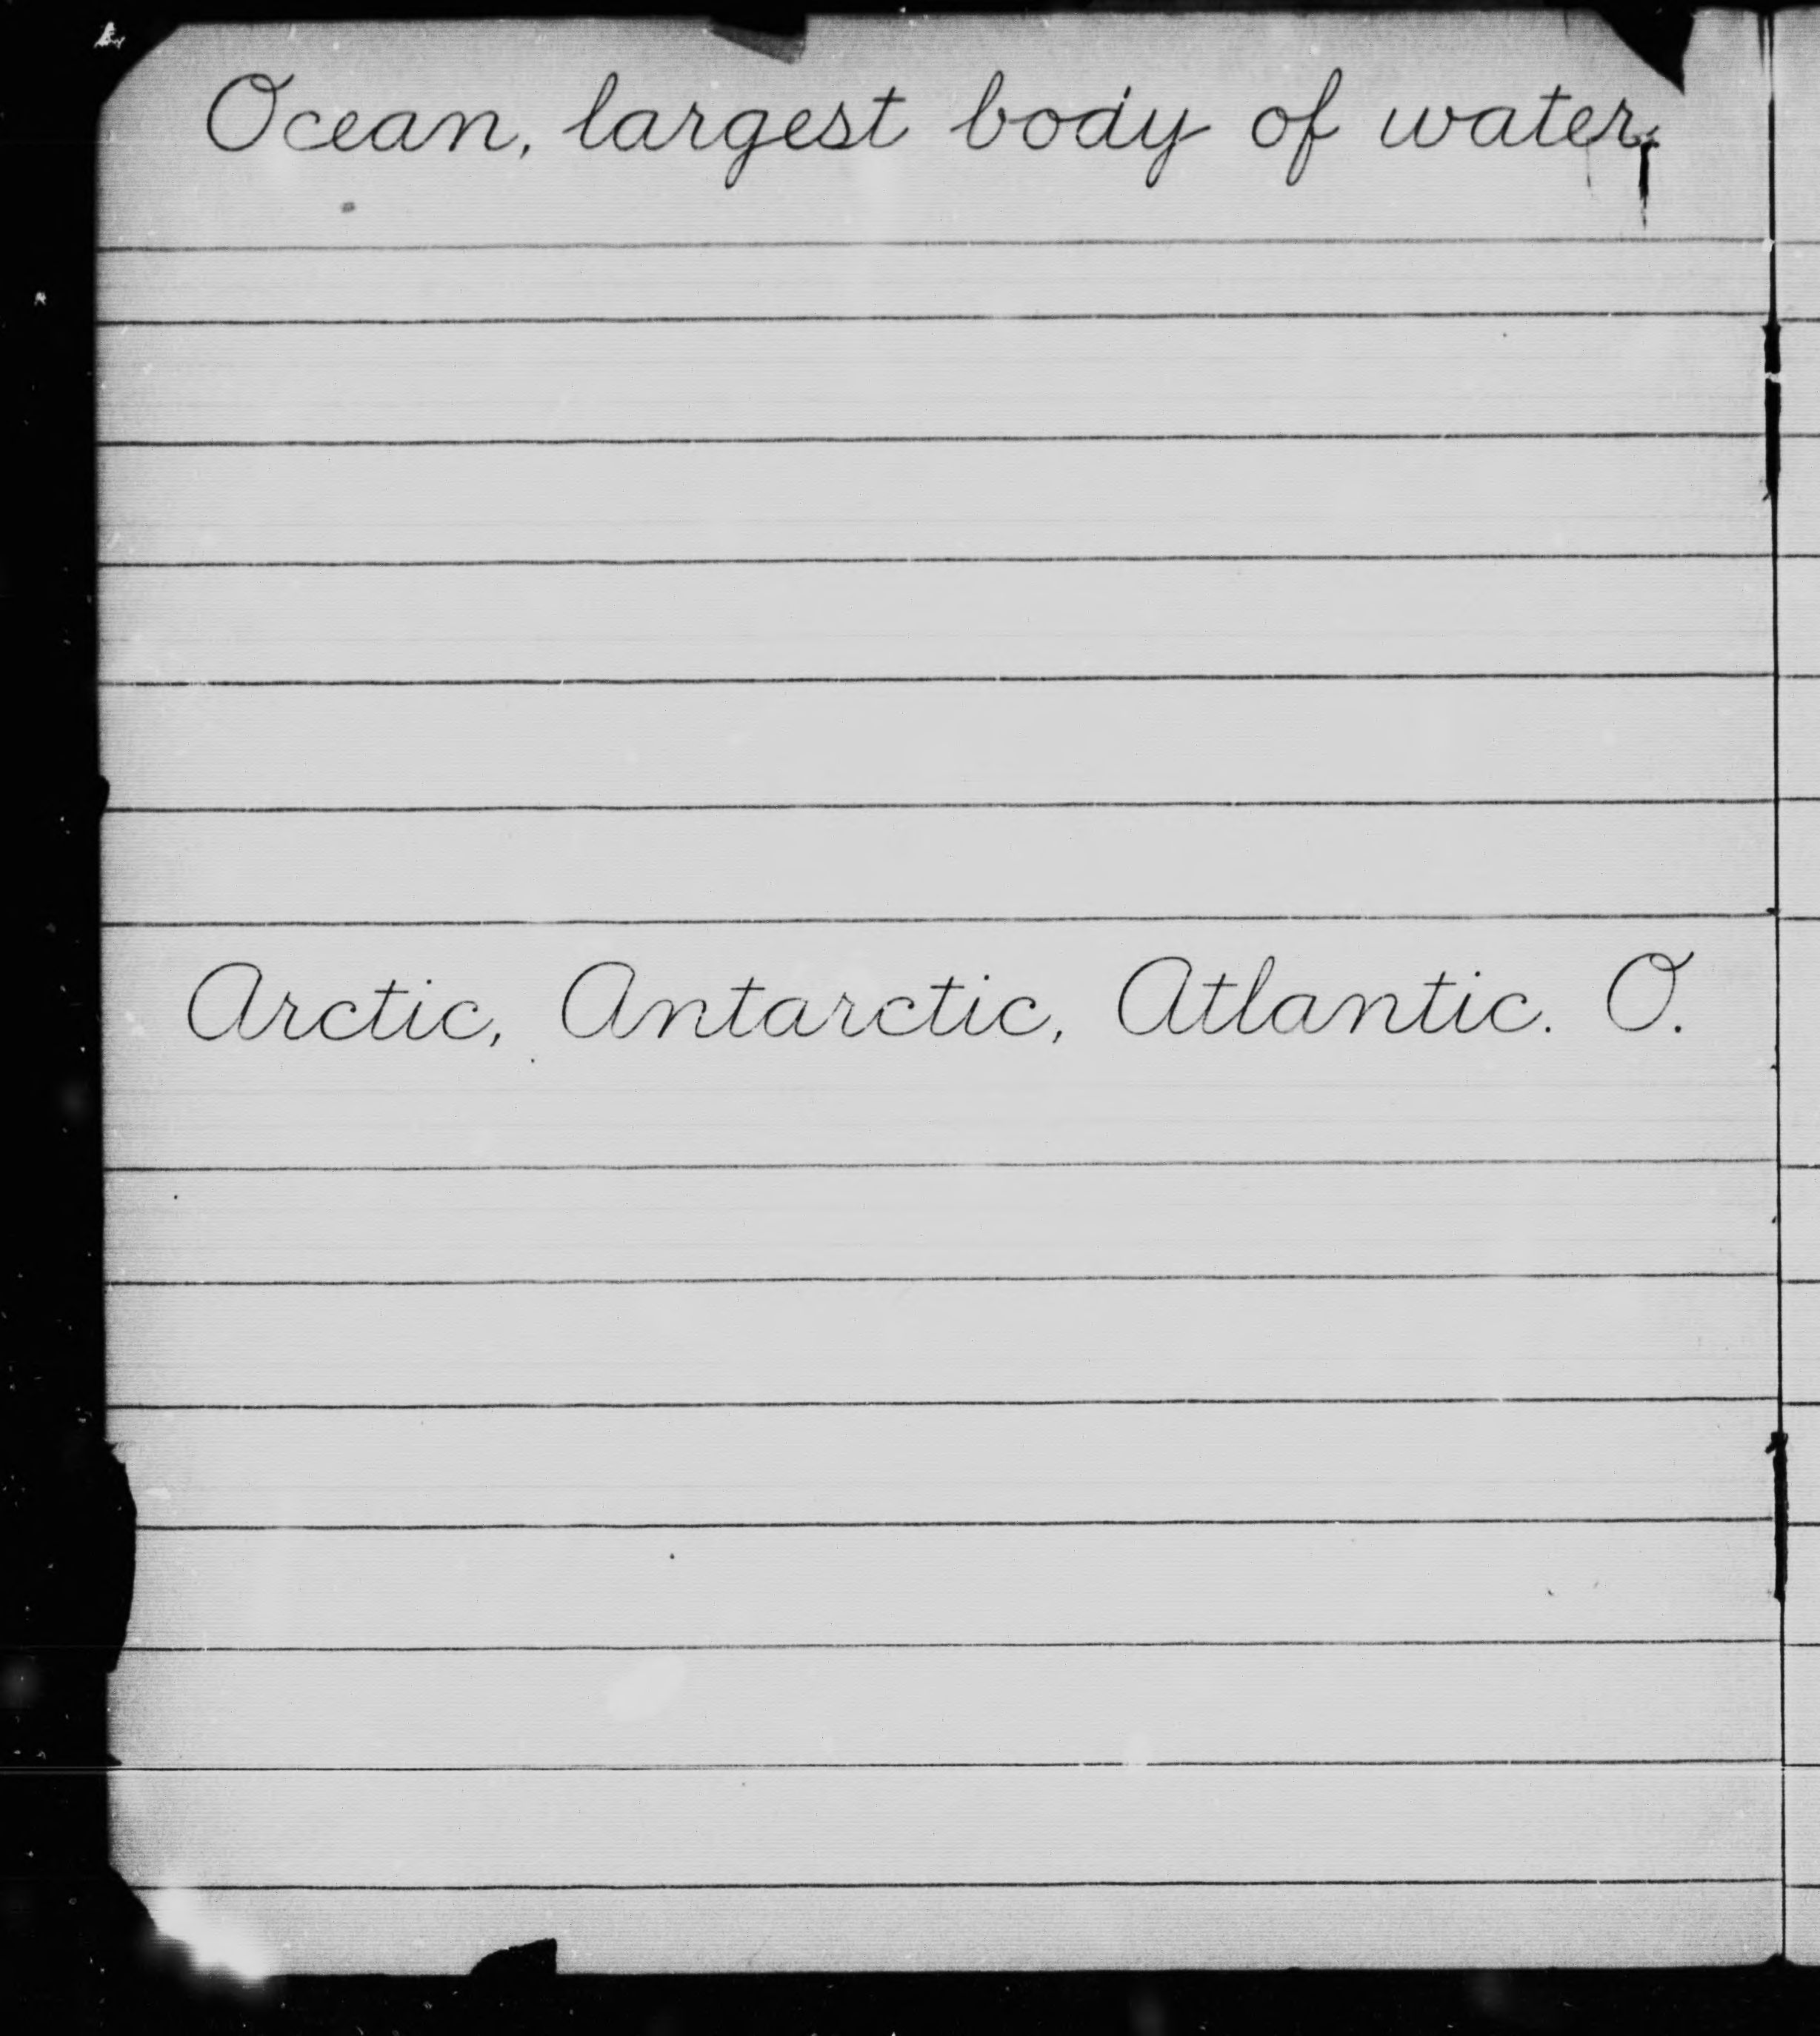 Ocean, largest body of water.
Arctic, Antarctic, Atlantic. O.